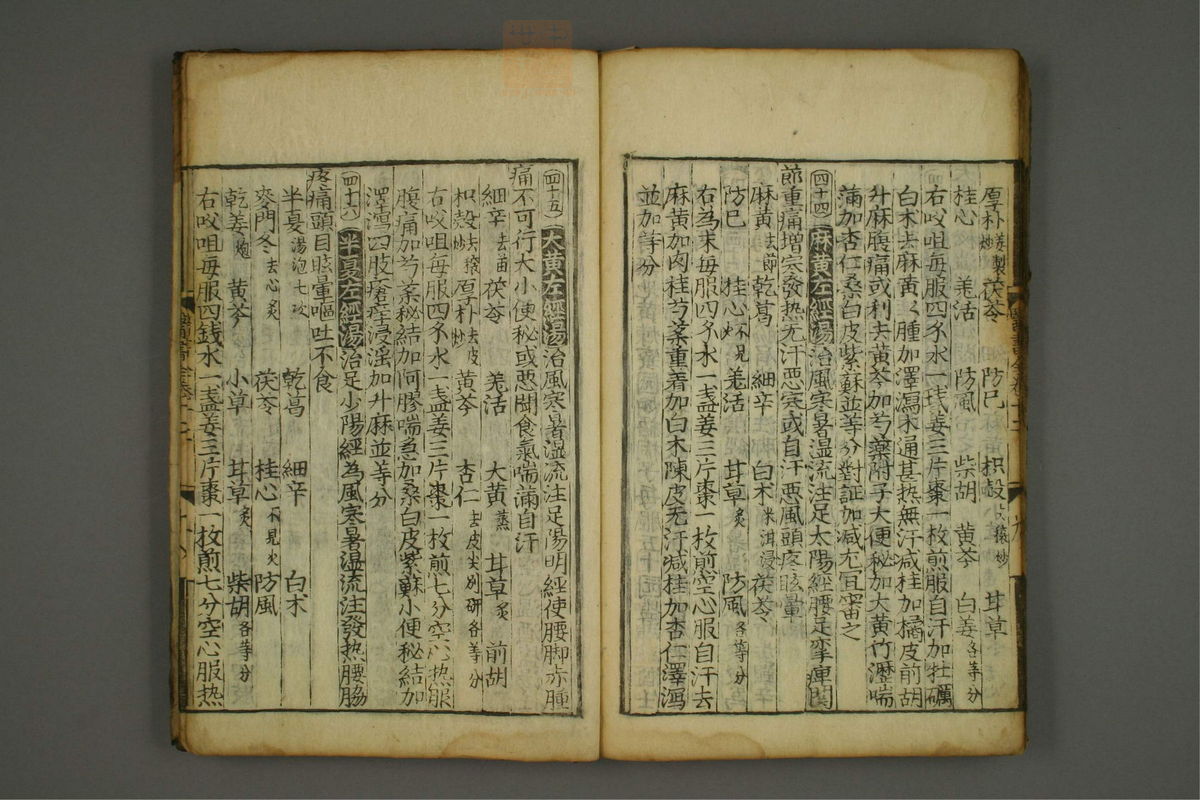 厚朴姜製炒 茯苓 防已 枳殼去穰炒 甘草
桂心 羗活 防風 柴胡 黄芩 白姜各等分
右㕮咀每服四錢水一盞姜三片棗一枚煎服自汗加牡礪
白术去麻黄黄腫加澤瀉未通甚热無汗减桂加橘皮前胡
升麻腹痛或利去黄芩加芍藥附子大便秘加大黄竹瀝喘
滿加杏仁桑白皮紫蘇並等分對証加减尤冝審之
四十四 麻黄左經湯治風寒暑温流注足太陽經腰足挛痺関
節重痛增寒發热无汗惡寒或自汗惡風頭疼眩暈
麻黄去節 乾葛 細辛 白术米泔浸 茯苓
防已 桂心不見火 羗活 甘草炙 防風各等分
右為末每服四錢水一盞姜三片棗一枚煎空心服自汗去
麻黄加肉桂芍藥重着加白术陳皮无汗减桂加杏仁澤瀉
並加等分
四十五 大黄左經湯治風寒暑温流注足陽明經使腰脚赤腫
痛不可行大小便秘或惡聞食氣喘滿自汗
細辛去苗 茯苓 羗活 大黄蒸 甘草炙 前胡
枳殼去穰炒 厚朴去皮炒 黄芩 杏仁去皮尖别研各等分
右㕮咀每服四錢水一盞姜三片棗一枚煎七分空心热服
腹痛加芍藥秘結加阿膠喘急加桑白皮紫蘇小便秘結加
澤瀉四肢瘡痒浸滛加升麻並等分
四十六 半夏左經湯治足少陽經為風寒暑温流注發热腰脇
疼痛頭目眩暈嘔吐不食
半夏湯泡七次 乾葛 細辛 白术
麥門冬去心炙 茯苓 桂心不見火 防風
乾姜炮 黄芩 小草 甘草炙 柴胡各等分
右㕮咀每服四錢水一盞姜三片棗一枚煎七分空心服热